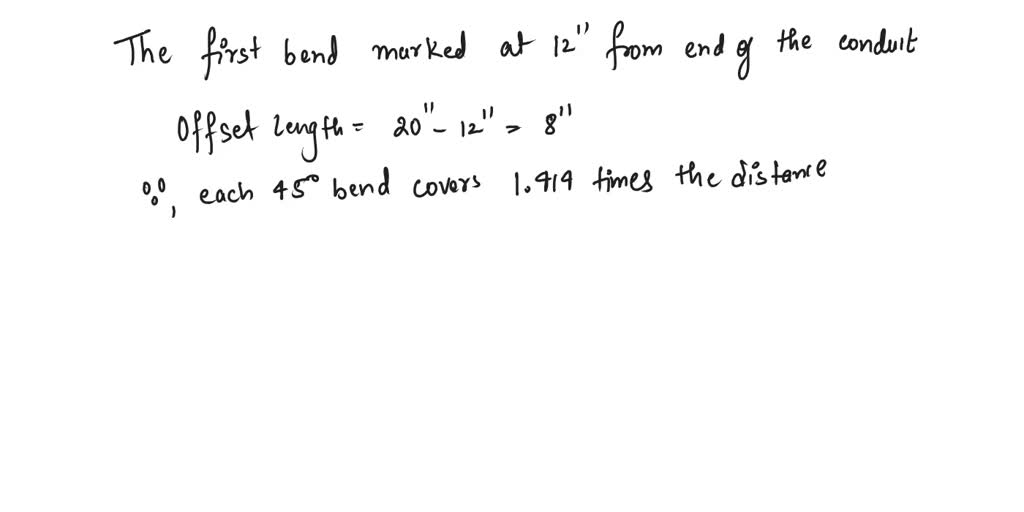 The first bend marked at 12" from end of the conduit
Offset length = 20" - 12" = 8"
∵, each 45° bend covers 1.414 times the distance